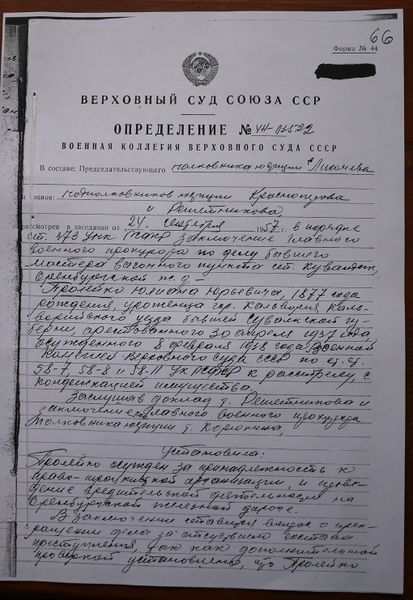 66
Форма № 44
ВЕРХОВНЫЙ СУД СОЮЗА ССР
ОПРЕДЕЛЕНИЕ № ун-
ВОЕННАЯ КОЛЛЕГИЯ ВЕРХОВНОГО СУДА СССР
В составе: Председательствующего полковника юстиции Лихачева
ленов: подполковников юстиции
и Решетникова
рассмотрев в заседании от 24 сентября 1957 г. в порядке
ст. 373 УПК РСФСР заключение Главного
военного прокурора по делу бывшего
мастера вагонного пункта ст. Кувандык,
Оренбургской ж.д.
Пролейко Юлиана Юрьевича, 1877 года
рождения, уроженца гор. Кальвария Каль-
варийского уезда бывшей Сувалкской гу-
бернии, арестованного 30 апреля 1937 года,
осужденного 8 февраля 1938 года Военной
Коллегией Верховного Суда СССР по ст.ст.
58-7, 58-8 и 58-11 УК РСФСР к расстрелу, с
конфискацией имущества.
Заслушав доклад т. Решетникова и
заключение Главного военного прокурора
полковника юстиции т.
Установила:
Пролейко осужден за принадлежность к
право-троцкистской организации, и прове-
дение вредительской деятельности на
Оренбургской железной дороге.
В заключении ставится вопрос о пре-
кращении дела за отсутствием состава
преступления, так как дополнительной
проверкой установлено, что Пролейко